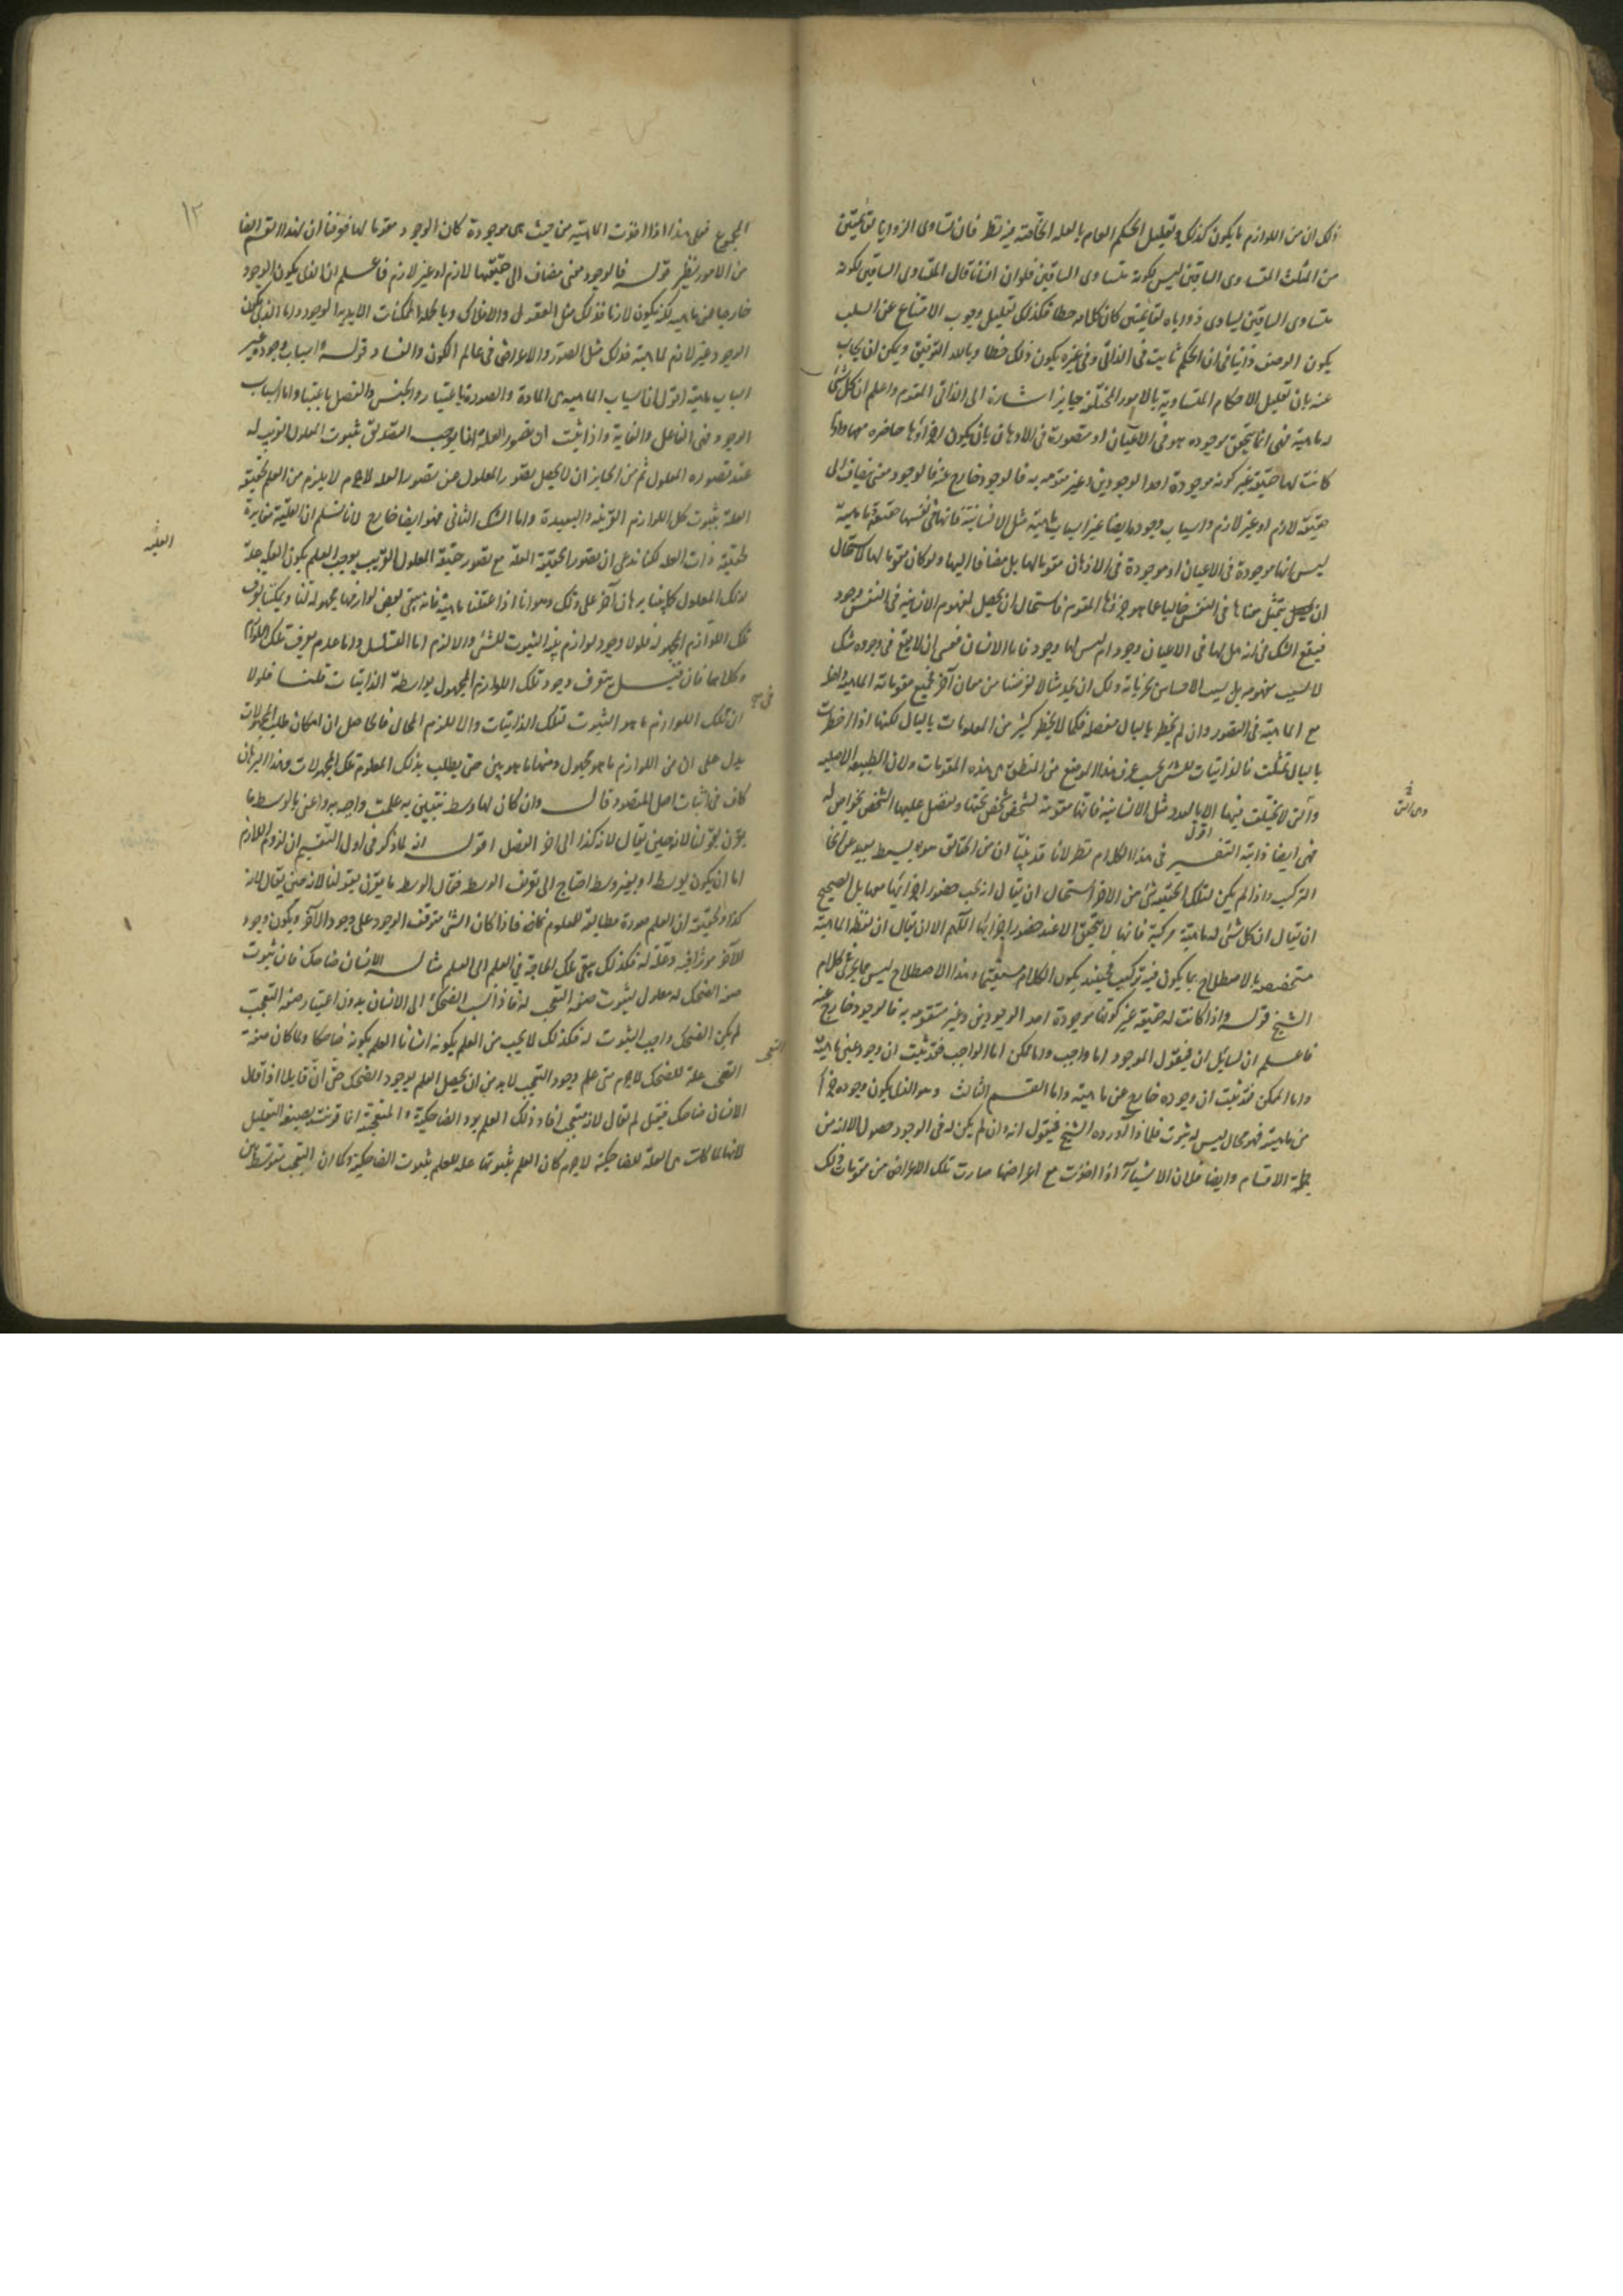 ذلك ان من اللوازم ما يكون كذلك وتعليل الحكم العام بالعلة الخاصة فيه نظر فان تساوى الزوايا لقائمتين
من المثلث المتساوى الساقين ليس لكونه متساوى الساقين فلو ان انسانا قال المتساوى الساقين لكونه
متساوى الساقين يساوى زواياه لقائمتين كان كلامه خطا فكذلك تعليل وجوب الامتناع عن السلب
يكون الوصف ذاتيا فى ان الحكم ثابت فى الذاتى وفى غيره يكون ذلك خطا وبالله التوفيق ويمكن ان يجاب
عنه بان تعليل الاحكام المتساوية بالامور المختلفة جايز اشارة الى الذاتى المقوم واعلم ان كل شئ
له ماهية فهى انما يتحقق موجوده هو فى الاعيان او متصورة فى الاذهان بان يكون اجزاؤها حاضره معها واذا
كانت لها حقيقة غير كونه موجودة احد الوجودين وغير متقومه به فالوجود خارج عنه فالوجود معنى مضاف الى
حقيقته لازم او غير لازم واسباب وجوده ايضا غير اسباب ماهيته مثل الانسانية فانها فى نفسها حقيقة ما وماهية
ليس انها موجودة فى الاعيان او موجودة فى الاذهان مقوما لها بل مضافا اليها ولو كان مقوما لها لاستحال
ان يتمثل معناها فى النفس خاليا عما هو جزؤها المقوم فاستحال ان يحصل لمفهوم الانسانية فى النفس وجود
فيقع الشك فى انه هل لها فى الاعيان وجود ام ليس لها وجود فاما الانسان فعسى ان لا يقع فى وجوده شك
لا لسبب مفهومه بل بسبب الاحساس بجزئياته ولك ان تجد مثالا لغرضنا من معان آخر فجميع مقومات الماهية داخله
مع الماهية فى التصور وان لم تخطر بالبال مفصله فكما لا يخطر كثير من المعلومات بالبال لكنها اذا اخطرت
بالبال تمثلت فالذاتيات للشئ بحسب عرف هذا الموضع من المنطق هى هذه المقومات ولان الطبيعة الاصلية
والتى لا يختلف فيها الا بالعدد مثل الانسانية فانها مقومة لشخص شخص تحتها ويفضل عليها الشخص بخواص له
فهى ايضا ذاتية التفسير اقول فى هذا الكلام نظر لانا قد بينا ان من الحقايق ما هو بسيط بعيد عن انحاء
التركيب واذا لم يكن لتلك الحقيقة شئ من الاجزاء استحال ان يقال انه يجب حضور اجزائها معها بل الصحيح
ان يقال ان كل شئ له ماهية مركبة فانها لا يتحقق الا عند حضور اجزائها اللهم الا ان يقال ان لفظ الماهية
متخصصة بالاصطلاح بما يكون فيه تركيب فحينئذ يكون الكلام مستقيما وهذا الاصطلاح ليس مما يجرى فى كلام
الشيخ قوله واذا كانت له حقيقة غير كونها موجودة احد الوجودين وغير متقومه به فالوجود خارج عنه
فاعلم ان لسايل ان يقول الموجود اما واجب واما ممكن اما الواجب فقد ثبت ان وجوده عين ماهيته
واما الممكن فقد ثبت ان وجوده خارج عن ماهيته واما القسم الثالث وهو الذى يكون وجوده جزءا
من ماهيته فهو محال ليس له ثبوت فلماذا اورده الشيخ فنقول انه وان لم يكن له فى الوجود حصول الا انه من
جملة الاقسام وايضا فلان الاشياء اذا اخذت مع اعراضها صارت تلك الاعراض من مقومات ذلك
المجموع فعلى هذا اذا اخذت الماهية من حيث هى موجودة كان الوجود مقوما لها فعرفنا ان لهذا القسم ايضا
من الامور نظير قوله فالوجود معنى مضاف الى حقيقتها لازم او غير لازم فاعلم ان الذى يكون الوجود
خارجيا عن ماهيته قد يكون لازما فذلك مثل العقول والافلاك وبالجملة الممكنات الابدية الوجود واما الذى يكون
الوجود غير لازم لماهيته فذلك مثل الصور والاعراض فى عالم الكون والفساد قوله واسباب وجوده غير
اسباب ماهيته اقول اسباب الماهية هى المادة والصورة باعتبار والجنس والفصل باعتبار واما اسباب
الوجود فهى الفاعل والغاية واذا ثبت ان تصور العلة انما يوجب التصديق بثبوت المعلول القريب له
عند تصوره المعلول ثم من الجايز ان لا يحصل تصور المعلول عن تصور العله لا جرم لا يلزم من العلم بحقيقة
العلة بثبوت كل اللوازم القريبه والبعيدة واما الشك الثانى فهو ايضا خارج لانا نسلم ان العلية مغايرة
لحقيقة ذات العله لكنا ندعى ان تصور الحقيقة العلة مع تصور حقيقة المعلول القريب يوجب العلم بكون العلة علة
لذلك المعلول كما بينا برهان آخر على ذلك وهو انا اذا عقلنا ماهية فانه يبقى بعض لوازمها مجهوله لنا ويمكننا تعرف
تلك اللوازم المجهوله فلولا وجود لوازم بينة الثبوت للشئ والا لزم اما التسلسل واما عدم معرفة تلك اللوازم
وكلاهما فان قيل يتعرف وجود تلك اللوازم المجهول بواسطة الذاتيات قلنا فلولا
ان فى تلك اللوازم ما هو الثبوت لتلك الذاتيات والا لزم المحال فالحاصل ان امكان طلب المجهولات
يدل على ان من اللوازم ما هو مجهول ومنها ما هو بين حتى يطلب بذلك المعلوم تلك المجهولات وهذا البرهان
كاف فى اثبات اصل المقصود قال وان كان لها وسط يتبين به علمت واجبه به واعنى بالوسط ما
يقرن بقولنا لانه حين يقال لانه كذا الى اخر الفصل اقول انه لما ذكر فى اول التقسيم ان لزوم اللازم
اما ان يكون بوسط او بغير وسط احتاج الى تعريف الوسط فقال الوسط ما يقرن بقولنا لانه حين يقال لانه
كذا والحقيقة ان العلم صورة مطابقة للمعلوم فاذا كان الشئ متوقف الوجود على وجود الآخر ويكون وجود
الآخر موثرا فيه وعلة له فكذلك يبقى تلك الحاجة فى العلم الى العلم مثاله الانسان ضاحك فان ثبوت
صفة الضحك له معلول لثبوت صفة التعجب له فاذا نسب الضحك الى الانسان بدون اعتبار صفة التعجب
لم يكن الضحك واجب الثبوت له فكذلك لا يجب من العلم بكونه انسانا العلم بكونه ضاحكا ولما كان صفة
التعجب علة للضحك لا جرم متى علم وجود التعجب لا بد من ان يحصل العلم بوجود الضحك حتى ان قايلا اذا قال
الانسان ضاحك فيقل لم قال لانه متعجب افاد ذلك العلم بوجود الضاحكية والمتعجبية انما قرنت بصيغة التعليل
لانها لما كانت هى العلة للضاحكية لا جرم كان العلم بثبوتها علة للعلم بثبوت الضاحكية وكما ان التعجب متوسط بين